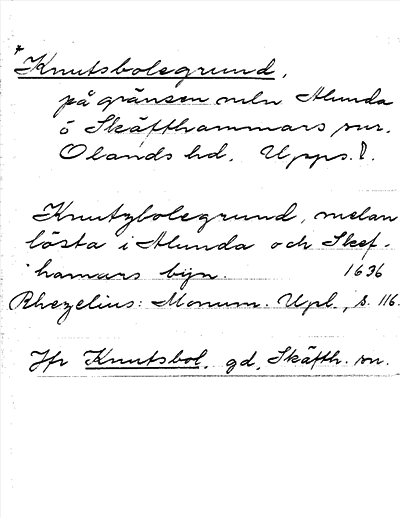 * Knutsbolsgrund,
på gränsen mln Alunda
o Skäfthammars snr.
Olands hd. Upps. l.
Knutzbolegrund, melan
lösta i Alunda och Skef-
hamars byn. 1636
Rhezelius: Monum. Upl., s. 116.
Jfr Knutsbol, gd, Skäfth. sn.